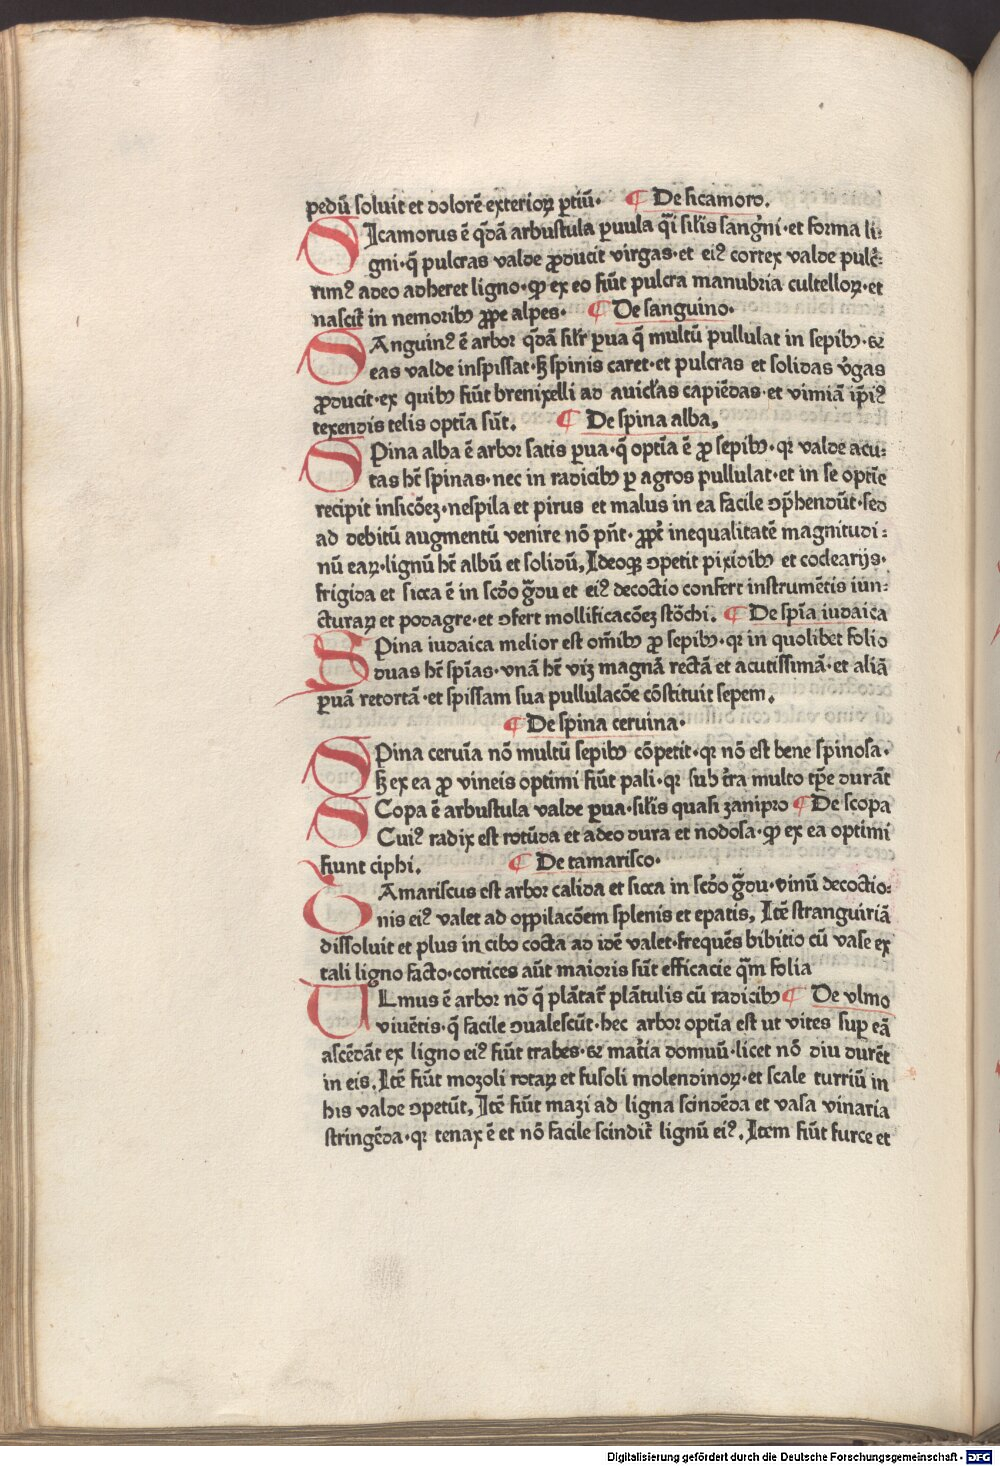 pedū soluit et dolorē exterioꝝ ꝑtiū· ¶ De sicamoro.
SIcamorus ē q̄dā arbustula ꝑuula q̄i sil̄is sangni· et forma li-
gni· q̄ pulcras valde ꝓducit virgas· et eiꝰ cortex valde pulcͣ-
rimꝰ adeo adheret ligno· ꝙ ex eo fiūt pulcra manubria cultelloꝝ· et
nascit̄ in nemoribꝫ ꝓpe alpes· ¶ De sanguino·
SAnguinꝰ ē arbor q̄dā sil̄r ꝑua q̄ multū pullulat in sepibꝫ· &
eas valde inspissat· sꝫ spinis caret· et pulcras et solidas v̓gas
ꝓducit· ex quibꝫ fiūt brenixelli ad auicl̄as capiēdas· et vimiā ip̄iꝰ
texendis telis optīa sūt. ¶ De spina alba.
SPina alba ē arbor satis ꝑua· q̄ optīa ē ꝓ sepibꝫ· qꝛ valde acu-
tas hꝫ spinas· nec in radicibꝫ ꝑ agros pullulat· et in se optīe
recipit insicōeꝫ· nespila et pirus et malus in ea facile ꝯp̄hendūt· sed
ad debitū augmentū venire nō pn̄t· ꝓpt̄ inequalitatē magnitudi-
nū eaꝝ· lignū hꝫ albū et solidū. Ideoqꝫ ꝯpetit pixidibꝫ et coclearijs·
frigida et sicca ē in scd̄o g̊du et eiꝰ decoctio confert instrumētis iun-
cturaꝝ et podagre· et ꝯfert mollificacōeꝫ stōchi. ¶ De spīa iudaica
SPina iudaica melior est om̄ibꝫ ꝓ sepibꝫ· qꝛ in quolibet folio
duas hꝫ spīas· vnā hꝫ viꝫ magnā rectā et acutissimā· et aliā
ꝑuā retortā· et spissam sua pullulacōe cōstituit sepem.
¶ De spina ceruina·
SPina ceruīa nō multū sepibꝫ cōpetit· qꝛ nō est bene spinosa·
sꝫ ex ea ꝓ vineis optimi fiūt pali· qꝛ sub t̄ra multo tp̄e durāt
SCopa ē arbustula valde ꝑua· sil̄is quasi zanipro ¶ De scopa
Cuiꝰ radix est rotūda et adeo dura et nodosa· ꝙ ex ea optimi
fiunt ciphi. ¶ De tamarisco·
TAmariscus est arbor calida et sicca in scd̄o g̊du· vinū decoctio-
nis eiꝰ valet ad oppilacōem splenis et epatis. Itē stranguiriā
dissoluit et plus in cibo cocta ad idē valet· frequēs bibitio cū vase ex
tali ligno facto· cortices aūt maioris sūt efficacie q̄m folia
VLmus ē arbor nō q̄ plātat̄ plātulis cū radicibꝫ ¶ De vlmo
viuētis· q̄ facile ꝯualescūt· hec arbor optīa est ut vites suꝑ eā
ascēdāt ex ligno eiꝰ fiūt trabes· & mat̄ia domuū· licet nō diu durēt
in eis. Itē fiūt mozoli rotaꝝ et fusoli molendinoꝝ· et scale turriū in
his valde ꝯpetūt. Itē fiūt mazi ad ligna scindēda et vasa vinaria
stringēda· qꝛ tenax ē et nō facile scindit̄ lignū eiꝰ. Item fiūt furce et
Digitalisierung gefördert durch die Deutsche Forschungsgemeinschaft · DFG